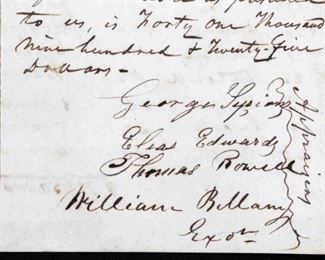 to us, is Forty One Thousand
Nine hundred & Twenty-five
Dollars-
George
Elias Edwards
Thomas Rowell
William Bellamy
Exor
Appraisers